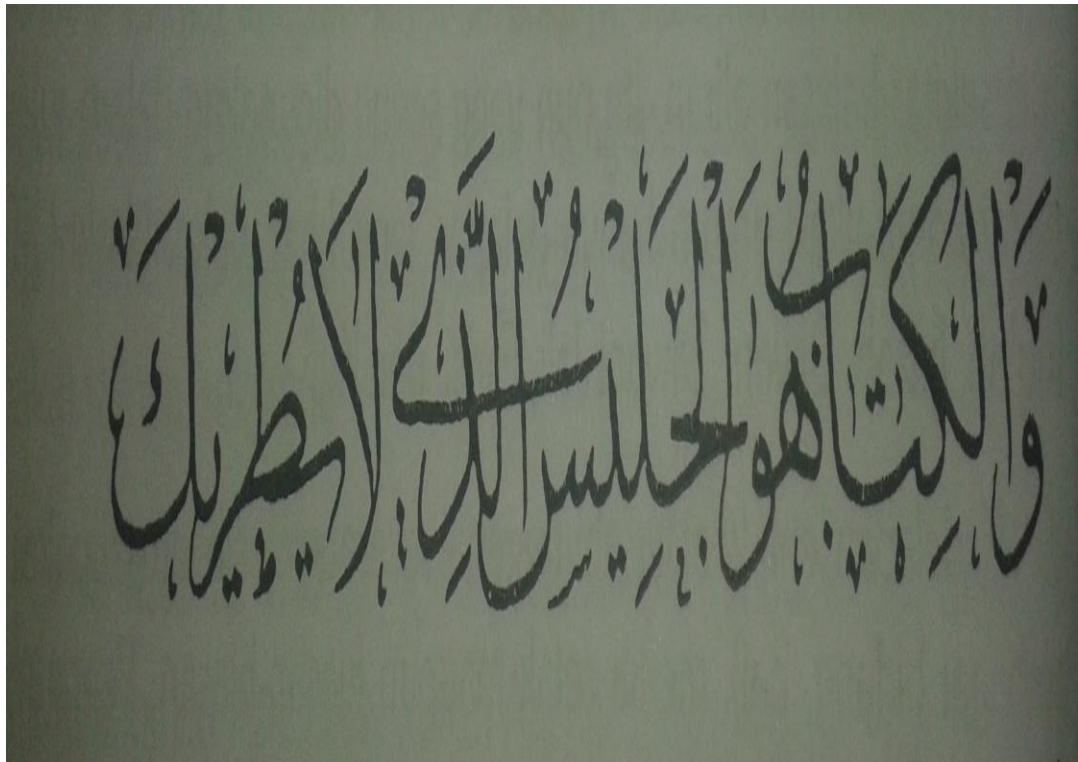 وَالْكِتَابُ هُوَ الْجَلِيسُ الَّذِي لَا يُطْرِيكَ